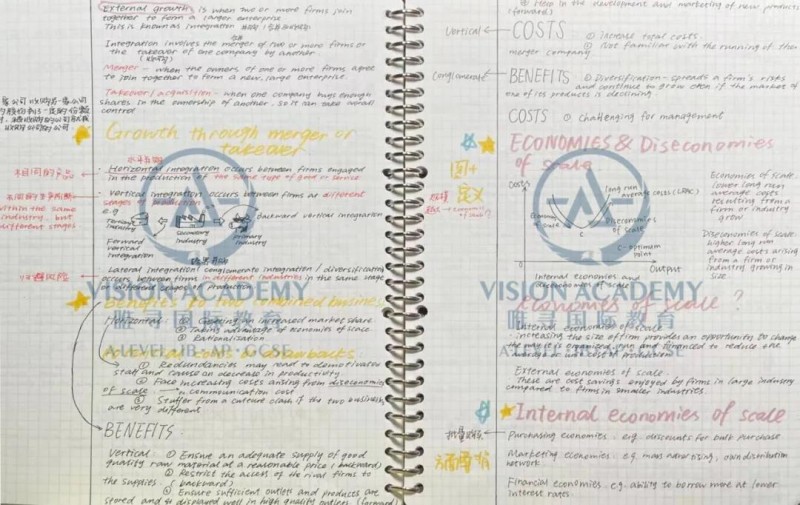 External growth is when two or more firms join
together to form a larger enterprise
This is known as integration
Integration involves the merger of two or more firms or
the takeover of one company by another.
Merger - when the owners of one or more firms agree
to join together to form a new, large enterprise.
Takeover / acquisition - when one company buys enough
shares in the ownership of another, so it can take overall
control
Growth through merger or
takeover
Horizontal integration occurs between firms engaged
in the production of the same type of good or service
Vertical integration occurs between firms at different
stages of production
e.g
Backward vertical integration
Secondary industry
Primary industry
Forward
vertical
integration
within the same
industry, but
different stages
Lateral integration conglomerate integration / diversification
occurs between firms in different industries in the same stage
VISION ACADEMY
唯寻国际教育
A-LEVEL IB AP IGCSE
Benefits to two combined busines
Horizontal: ① increased market share
② Taking advantage of economies of scale
③ Rationalization
costs & drawbacks
① Redundancies may lead to demotivated
staff and cause an decrease in productivity
② Face increasing costs arising from diseconomies
of scale → communication cost
③ Suffer from a culture clash if the two business
are very different
BENEFITS
Vertical: ① Ensure an adequate supply of good
quality raw material at a reasonable price (backward)
② Restrict the access of the rival firms
to the supplies (backward)
③ Ensure sufficient outlets and products are
stored and displayed well in high quality outlets (forward
in the development and marketing of new products
(forward)
Vertical
COSTS
① increase total costs.
② Not familiar with the running of the
merger company
Conglomerate
BENEFITS
① Diversification - spreads a firm's risks
and continue to grow even if the market of
one of its products is declining
COSTS
① challenging for management
ECONOMIES & Diseconomies
of scale
图+
定义
Costs
long run
average costs (LRAC)
Economy of scale
Diseconomies
of scale
C
C - optimum
point
Output
0
Internal economies and
diseconomies of scale
Economies of scale
lower long run
average costs
resulting from
a firm or
industry grow
Diseconomies of scale
higher long run
average costs arising
from a firm or
industry growing in
size.
VISION ACADEMY
唯寻国际教育
A-LEVEL IB AP IGCSE
Economies of scale ?
Internal economies of scale
increasing the size of firm provides an opportunity to change
the way it is organised, and financed to reduce the
average or unit cost of production
External economies of scale.
These are cost savings enjoyed by firms in large industry
compared to firms in smaller industries.
Internal economies of scale
Purchasing economies. e.g. discounts for bulk purchase
Marketing economies. e.g. mass advertising, own distribution
network
Financial economies. e.g. ability to borrow more at lower
interest rates.